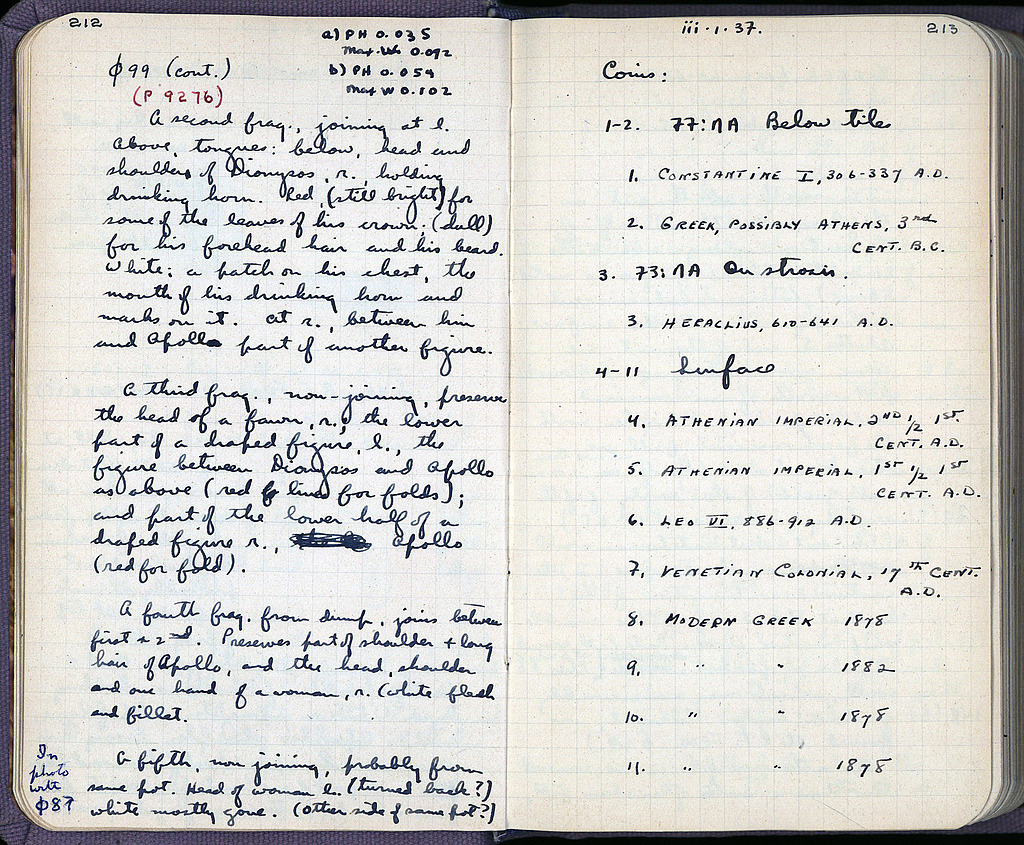 212
a) PH 0.035
Max. W. 0.092
b) PH 0.054
Max W 0.102
Φ99 (cont.)
(P 9276)
A second frag., joining at l.
above, tongues: below, head and
shoulders of Dionysos, r., holding
drinking horn. Red, (still bright) for
some of the leaves of his crown; (dull)
for his forehead hair and his beard.
White: a patch on his chest, the
mouth of his drinking horn and
marks on it. At r., between him
and Apollo part of another figure.
A third frag., non-joining, preserves
the head of a fawn, r., the lower
part of a draped figure, l., the
figure between Dionysos and Apollo
as above (red lines for folds);
and part of the lower half of a
draped figure r., Apollo
(red for fold).
A fourth frag. from dump, joins between
first + 2nd. Preserves part of shoulder + long
hair of Apollo, and the head, shoulder
and one hand of a woman, r. (white flesh
and fillet.
In
photo
with
Φ87
A fifth, non joining, probably from
same pot. Head of woman l. (turned back?)
white mostly gone. (Other side of same pot?)
iii.1.37.
213
Coins:
1-2. 77:ΛΑ Below tiles
1. CONSTANTINE I, 306-337 A.D.
2. GREEK, POSSIBLY ATHENS, 3rd
CENT. B.C.
3. 73:ΛΑ On strosis.
3. HERACLIUS, 610-641 A.D.
4-11 Surface
4. ATHENIAN IMPERIAL, 2ND 1/2 1ST
CENT. A.D.
5. ATHENIAN IMPERIAL, 1ST 1/2 1ST
CENT. A.D.
6. LEO VI, 886-912 A.D.
7. VENETIAN COLONIAL, 17TH CENT.
A.D.
8. MODERN GREEK 1878
9. " " 1882
10. " " 1878
11. " " 1878